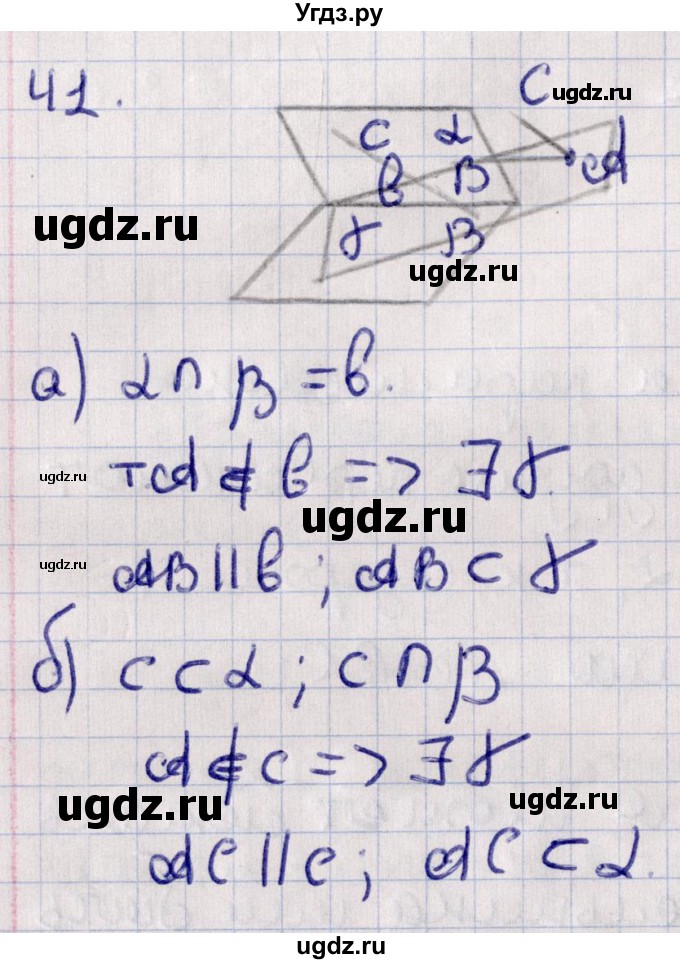 Угдз.ру
41.
C ugdz.ru
c α
в β A
γ B
ugdz.ru
ugdz.ru
а) α ∩ β = в.
ugdz.ru
т A ∉ в => ∃ γ.
ugdz.ru
ugdz.ru
AB || в ; AB ⊂ γ
б) c ⊂ α ; c ∩ β
A ∉ c => ∃ γ
ugdz.ru
ugdz.ru
AC || c ; AC ⊂ α.
ugdz.ru